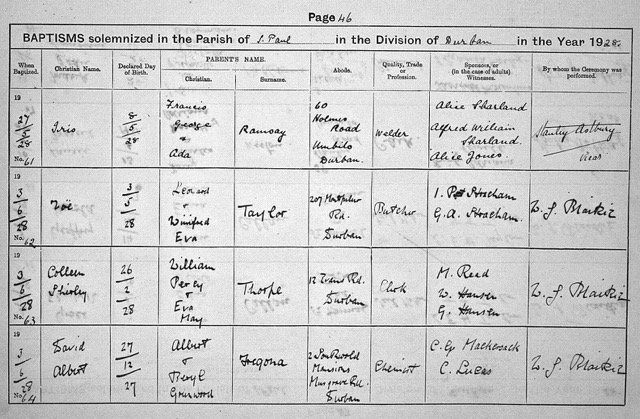 Page 46
BAPTISMS solemnized in the Parish of S. Paul in the Division of Durban in the Year 1928.
When Baptized.
Christian Name.
Declared Day of Birth.
PARENT'S NAME.
Christian.
Surname.
Abode.
Quality, Trade or Profession.
Sponsors, or (in the case of adults) Witnesses.
By whom the Ceremony was performed.
19
27/5/28
No. 61
Iris
8/5/28
Francis
George
&
Ada
Ramsay
60
Holmes
Road
Umbilo
Durban.
Welder
Alice Sharland
Alfred William
Sharland.
Alice Jones.
Stanley Astbury
Vicar
19
3/6/28
No. 62
Zoë
3/5/28
Leonard
&
Winifred
Eva
Taylor
207
Rd.
Durban
Butcher
G. A. Stracham.
19
3/6/28
No. 63
Colleen
Shirley
26/2/28
William
Percy
&
Eva
May.
Thorpe
12 Rd.
Durban
Clerk
M. Reed
W. Hansen
G. Hansen
19
3/6/28
No. 64
David
Albert
27/12/27
Albert
&
Beryl
Greenwood
Tregona
2
Mansions
Musgrave Rd.
Durban
Chemist
C. Lucas